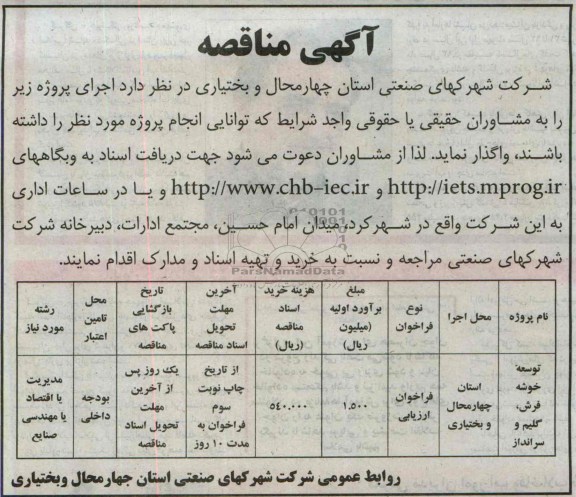 آگهی مناقصه
شرکت شهرکهای صنعتی استان چهارمحال و بختیاری در نظر دارد اجرای پروژه زیر
را به مشاوران حقیقی یا حقوقی واجد شرایط که توانایی انجام پروژه مورد نظر را داشته
باشند، واگذار نماید. لذا از مشاوران دعوت می شود جهت دریافت اسناد به وبگاههای
http://iets.mprog.ir و http://www.chb-iec.ir و یا در ساعات اداری
به این شرکت واقع در شهرکرد، میدان امام حسین، مجتمع ادارات، دبیرخانه شرکت
شهرکهای صنعتی مراجعه و نسبت به خرید و تهیه اسناد و مدارک اقدام نمایند.
ParsNamadData
نام پروژه
محل اجرا
نوع
فراخوان
مبلغ
برآورد اولیه
(میلیون
ریال)
هزینه خرید
اسناد
مناقصه
(ریال)
آخرین
مهلت
تحویل
اسناد مناقصه
تاریخ
بازگشایی
پاکت های
مناقصه
محل
تامین
اعتبار
رشته
مورد نیاز
توسعه
خوشه
فرش،
گلیم و
سرانداز
استان
چهارمحال
و بختیاری
فراخوان
ارزیابی
۱,۵۰۰
۵۴۰,۰۰۰
از تاریخ
چاپ نوبت
سوم
فراخوان به
مدت ۱۰ روز
یک روز پس
از آخرین
مهلت
تحویل اسناد
مناقصه
بودجه
داخلی
مدیریت
یا اقتصاد
یا مهندسی
صنایع
روابط عمومی شرکت شهرکهای صنعتی استان چهارمحال وبختیاری